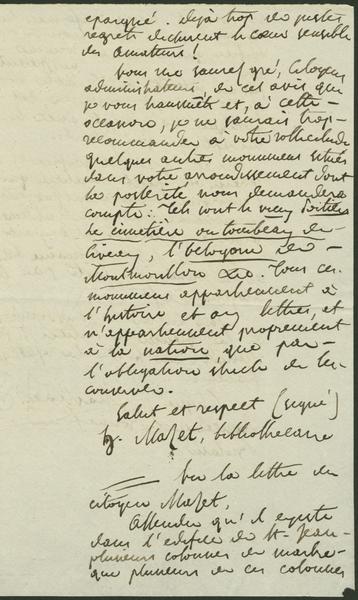 épargné. déjà trop de justes
regrets déchirent le cœur sensible
des amateurs!
Vous me saurez gré, Citoyens
administrateurs, de cet avis que
je vous transmets et, à cette
occasion, je ne saurais trop
recommander à votre sollicitude
quelques autres monumens situés
dans votre arrondissement dont
la postérité vous demandera
compte: tels sont le vieux Poitiers
le cimetière ou tombeau de
Civeaux, l'octogone de
Montmorillon &c. Tous ces
monumens appartiennent à
l'histoire et aux lettres, et
n'appartiennent proprement
à la nation, que par
l'obligation stricte de les
conserver.
Salut et respect (signé)
Mazet, bibliothécaire
Vu la lettre du
citoyen Mazet,
Attendu qu'il existe
dans l'édifice de St-Jean
plusieurs colonnes de marbre
que plusieurs de ces colonnes